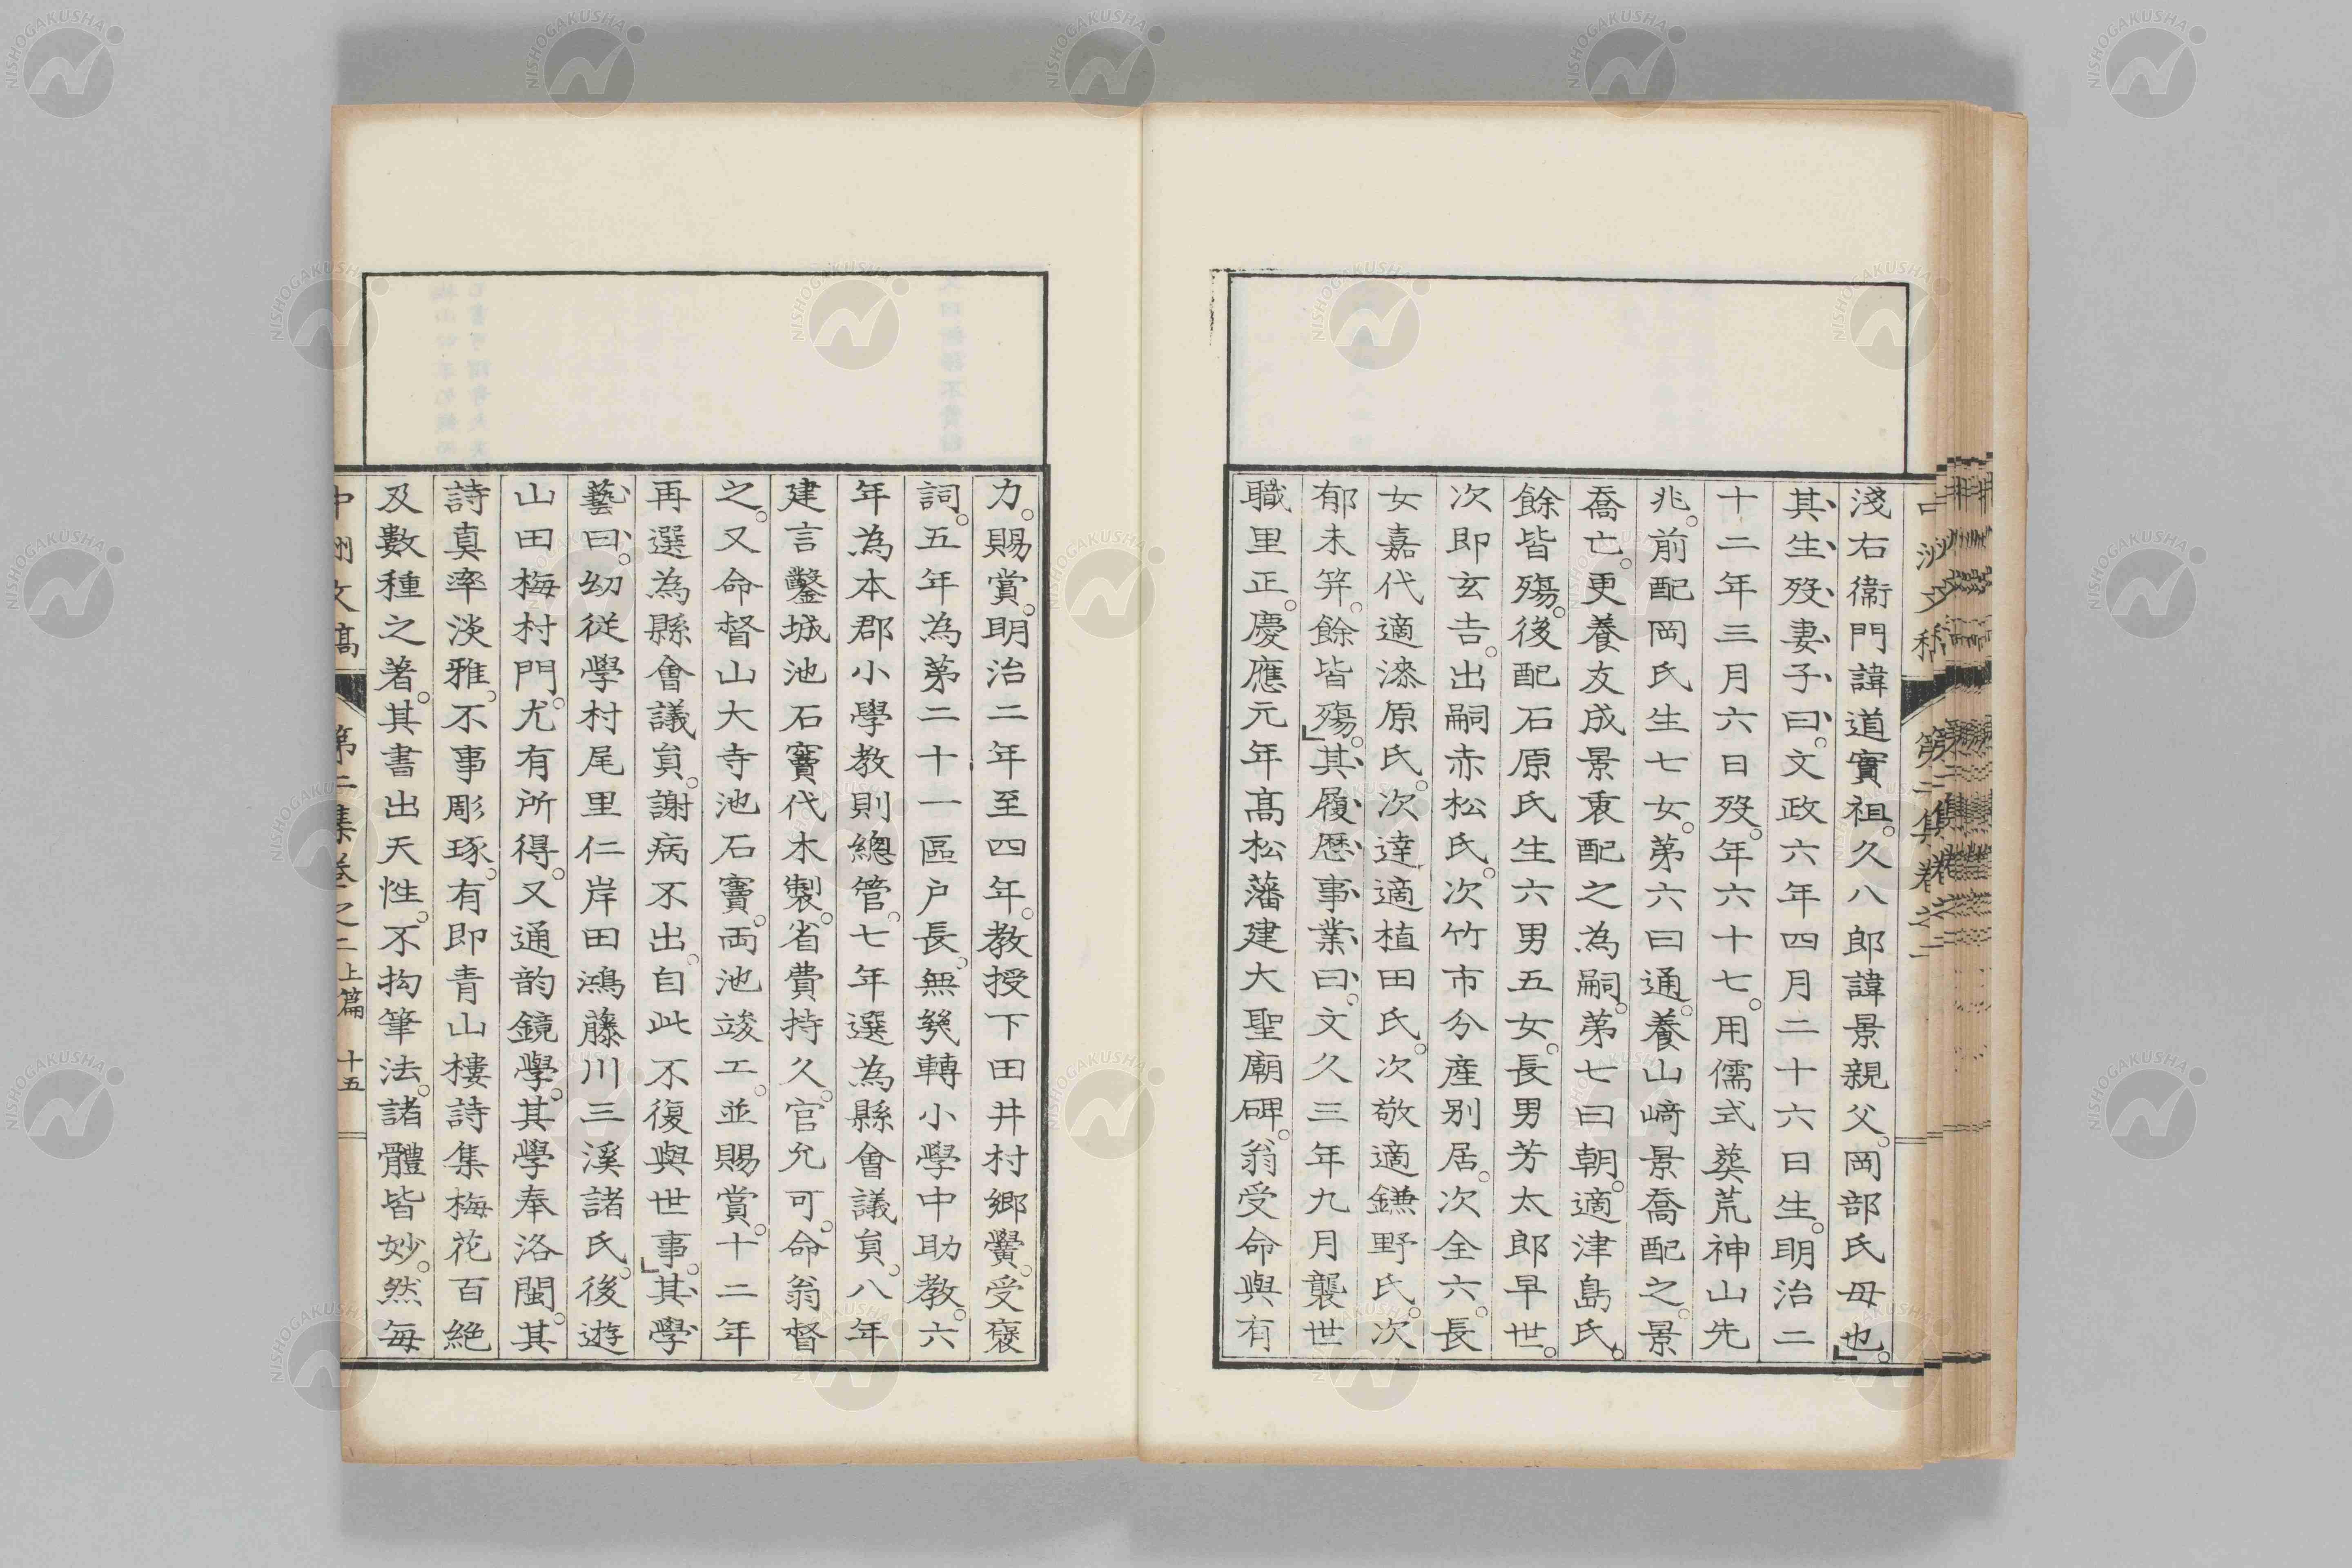 淺右衞門諱道實祖。久八郎諱景親父。岡部氏母也。
其生歿妻子曰。文政六年四月二十六日生。明治二
十二年三月六日歿。年六十七。用儒式葬荒神山先
兆。前配岡氏生七女。第六曰通。養山﨑景喬配之。景
喬亡。更養友成景衷配之為嗣。第七曰朝。適津島氏。
餘皆殤。後配石原氏生六男五女。長男芳太郎早世。
次即玄吉。出嗣赤松氏。次竹市分産別居。次全六。長
女嘉代適漆原氏。次達適植田氏。次敬適鎌野氏。次
郁未笄。餘皆殤。其履歷事業曰。文久三年九月襲世
職里正。慶應元年髙松藩建大聖廟碑。翁受命與有
力。賜賞。明治二年至四年。教授下田井村鄉黌。受褒
詞。五年為第二十一區户長。無幾轉小學中助教。六
年為本郡小學教則總管。七年選為縣會議員。八年
建言鑿城池石竇代木製。省費持久。官允可。命翁督
之。又命督山大寺池石竇。両池竣工。並賜賞。十二年
再選為縣會議員。謝病不出。自此不復與世事。其學
藝曰。幼從學村尾里仁岸田鴻藤川三溪諸氏。後遊
山田梅村門。尤有所得。又通韵鏡學。其學奉洛閩。其
詩真率淡雅。不事彫琢。有即青山樓詩集梅花百絶
及數種之著。其書出天性。不拘筆法。諸體皆妙。然每
中洲文稿 第二集卷之二 上篇 十五